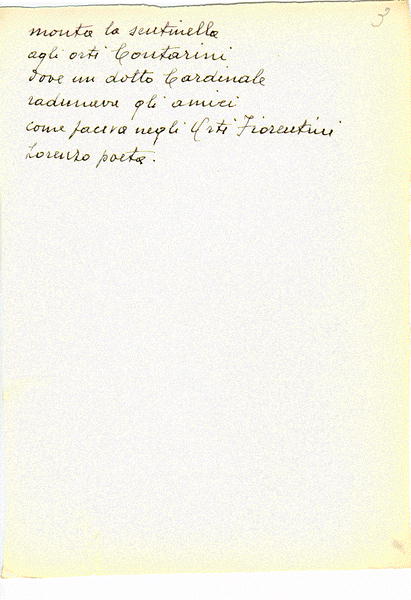 3
monta la sentinella
agli orti Contarini
dove un dotto Cardinale
radunava gli amici
come faceva negli Orti Fiorentini
Lorenzo poeta.